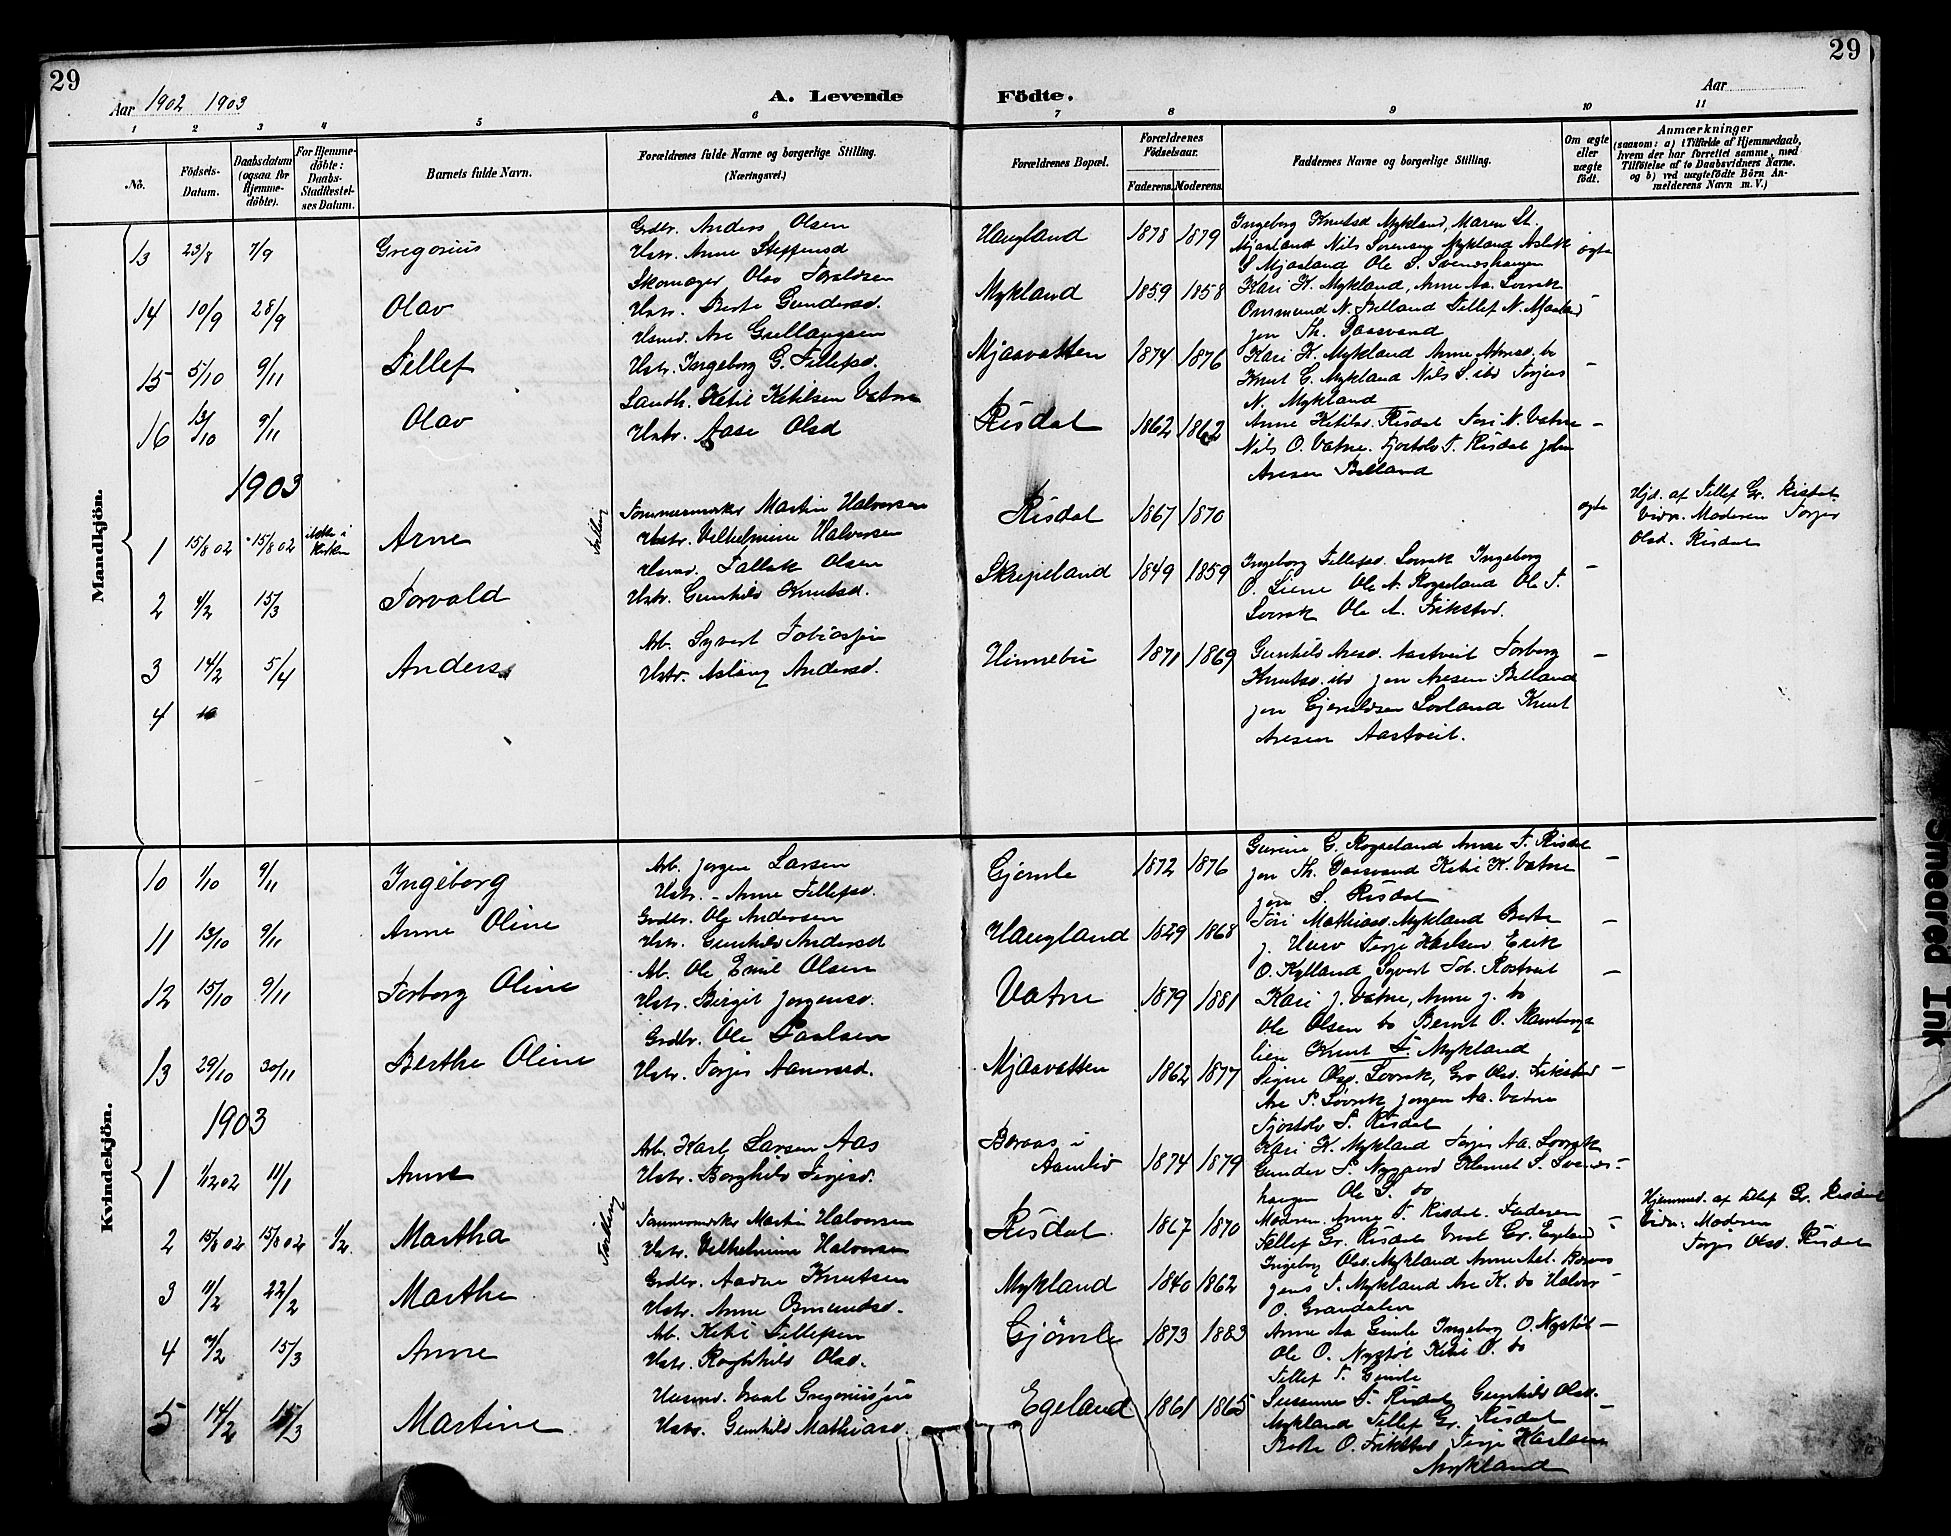 29
29
Aar 1902 1903
A. Levende Födte.
Aar
1 2 3 4 5 6 7 8 9 10 11
No.
Födsels-Datum.
Daabsdatum (ogsaa for Hjemme-döbte).
For Hjemme-döbte: Daabs-Stadfæstel-ses Datum.
Barnets fulde Navn.
Forældrenes fulde Navne og borgerlige Stilling.
(Næringsvei.)
Forældrenes Bopæl.
Forældrenes Födselsaar.
Faderens. Moderens.
Faddernes Navne og borgerlige Stilling.
Om ægte eller uægte født.
Anmærkninger
(saasom: a) i Tilfælde af Hjemmedaab, hvem der har forrettet samme, med Tilföielse af to Daabsvidners Navne. og b) ved uægtefödte Börn An-melderens Navn m. V.)
Mandkjön.
13 23/8 7/9 Gregorius
Grdbr. Anders Olsen
Hstr. Anne Steffensd
Haugland 1878 1879
Ingeborg Knutsd Mykland, Maren St.
Mjaaland Nils Sorensen Mykland Aslak
S Mjaaland Ole S. Svendshaugen
ægte
14 10/9 28/9 Olav
Skomager Olav
Hstr. Berte Gundersd.
Mykland 1859 1858 -
Kari K. Mykland, Anne Aa. Lovrak
Ommund N. Belland Tellef N. Mjaaland
jon Th. Daasvand
15 5/10 9/11 Tellef
Husmd. Are
Hstr. Ingeborg G. Tellefsd.
Mjaavatten 1874 1876 -
Kari K. Mykland Anne
Knut G. Mykland Nils S. ibd Torjus
N. Mykland
16 13/10 9/11 Olav
Landh. Ketil Ketilsen Vatne
Hstr. Aase Olsd
Risdal 1862 1862 -
Anne Ketilsd. Risdal Tori N. Vatne
Nils O. Vatne. Fjostolv T. Risdal John
Aresen Belland
1903
1 15/8 02 15/8 02 ikke i Kirken Arne
Tvilling
Tommermerker Martin Halvorsen
Hstr. Vilhelmine Halvorsen
Risdal 1867 1870 ægte
Hjd. af Tellef Gr. Risdal
Vidn. Moderen Torjer
Olsd. Risdal
2 4/2 15/3 Torvald
Husmd. Tallak Olsen
Hstr. Gunhild Knutsd.
Skripeland 1849 1859 -
Ingeborg Tellefsd. Lovrak Ingeborg
O. Liene Ole N. Rogseland Ole T.
Lovrak Ole A. Frikstad.
3 14/2 5/4 Anders
Arb. Syvert Tobiassen
Hstr. Aslaug Andersd.
Hinnebu 1871 1869 -
Gunhild Aresd. Aastveit Torborg
Knutsd. ibd jon Aresen Belland
jon Gjeruldsen Lovland Knut
Aresen Aastveit.
4 10
Kvindekjön.
10 1/10 9/11 Ingeborg
Arb. jorgen Larsen
Hstr. Anne Tellefsd.
Gjomle 1872 1876 -
Gurine G. Rogseland Anne T. Risdal
jon Th. Daasvand Ketil K. Vatne
jon S. Risdal
11 13/10 9/11 Anne Oline
Grdbr. Ole Andersen
Hstr. Gunhild Andersd
Haugland 1829 1868 -
Tori Mathiasd. Mykland Berte
J. Terje Karlsen Erik
O. Kylland Syvert Tob. Rostveit
12 15/10 9/11 Torborg Oline
Ab. Ole Emil Olsen
Hstr. Birgit Jorgensd.
Vatne 1879 1881 -
Kari J. Vatne, Anne J. do
Ole Olsen do Bernt O. Ramberg-
lien Knut T. Mykland
13 29/10 30/11 Berthe Oline
Grdbr. Ole Paulsen
Hstr. Torjer Aanensd.
Mjaavatten 1862 1877 -
Signe Olsd. Lovrak, Gro Olsd. Frikstad
Are P. Lovrak Jorgen Aa. Vatne
Fjostolv T. Risdal
1903
1 1/12 02 11/1 Anne
Arb. Karl Larsen Aas
Hstr. Borghild Terjesd.
Boraas i Aamlid 1874 1879 -
Kari K. Mykland Torjer Aa. Lovrak
Gunder P. Nygaard Klemet S. Svends-
haugen Ole S. do
2 15/8 02 15/8 02 1/2. Martha
Tvilling
Tommermerker Martin Halvorsen
Hstr. Vilhelmine Halvorsen
Risdal. 1867 1870 -
Modren. Anne T. Risdal. Faderen
Tellef Gr. Risdal Vraal Gr. Egeland
Hjemmed. af Tellef Gr. Risdal
Vidn. Modren
Torjer Olsd. Risdal
3 11/2 22/2 Marthe
Grdbr. Aadne Knutsen
Hstr. Anne Osmundsd.
Mykland 1840 1862 -
Ingeborg Olsd. Mykland Anne Boraas
jens T. Mykland Are K. do Halvor
O. Grandalen
4 7/2 15/3 Anne
Ab. Ketil Tellefsen
Hstr. Ragnhild Olsd.
Gjömle 1873 1883 -
Anne Aa Gimle Ingeborg O. Nystöl
Ole O. Nystöl Ketil O. do
Tellef T. Gimle
5 14/2 15/3 Martine
Husmd. Vraal Gregoriussen
Hstr. Gunhild Mathiasd.
Egeland 1861 1865 -
Susanne T. Risdal Gunhild Olsd.
Mykland Tellef Gr. Risdal
Berte O. Frikstad Terje Karlsen
Mykland
Smeared Ink